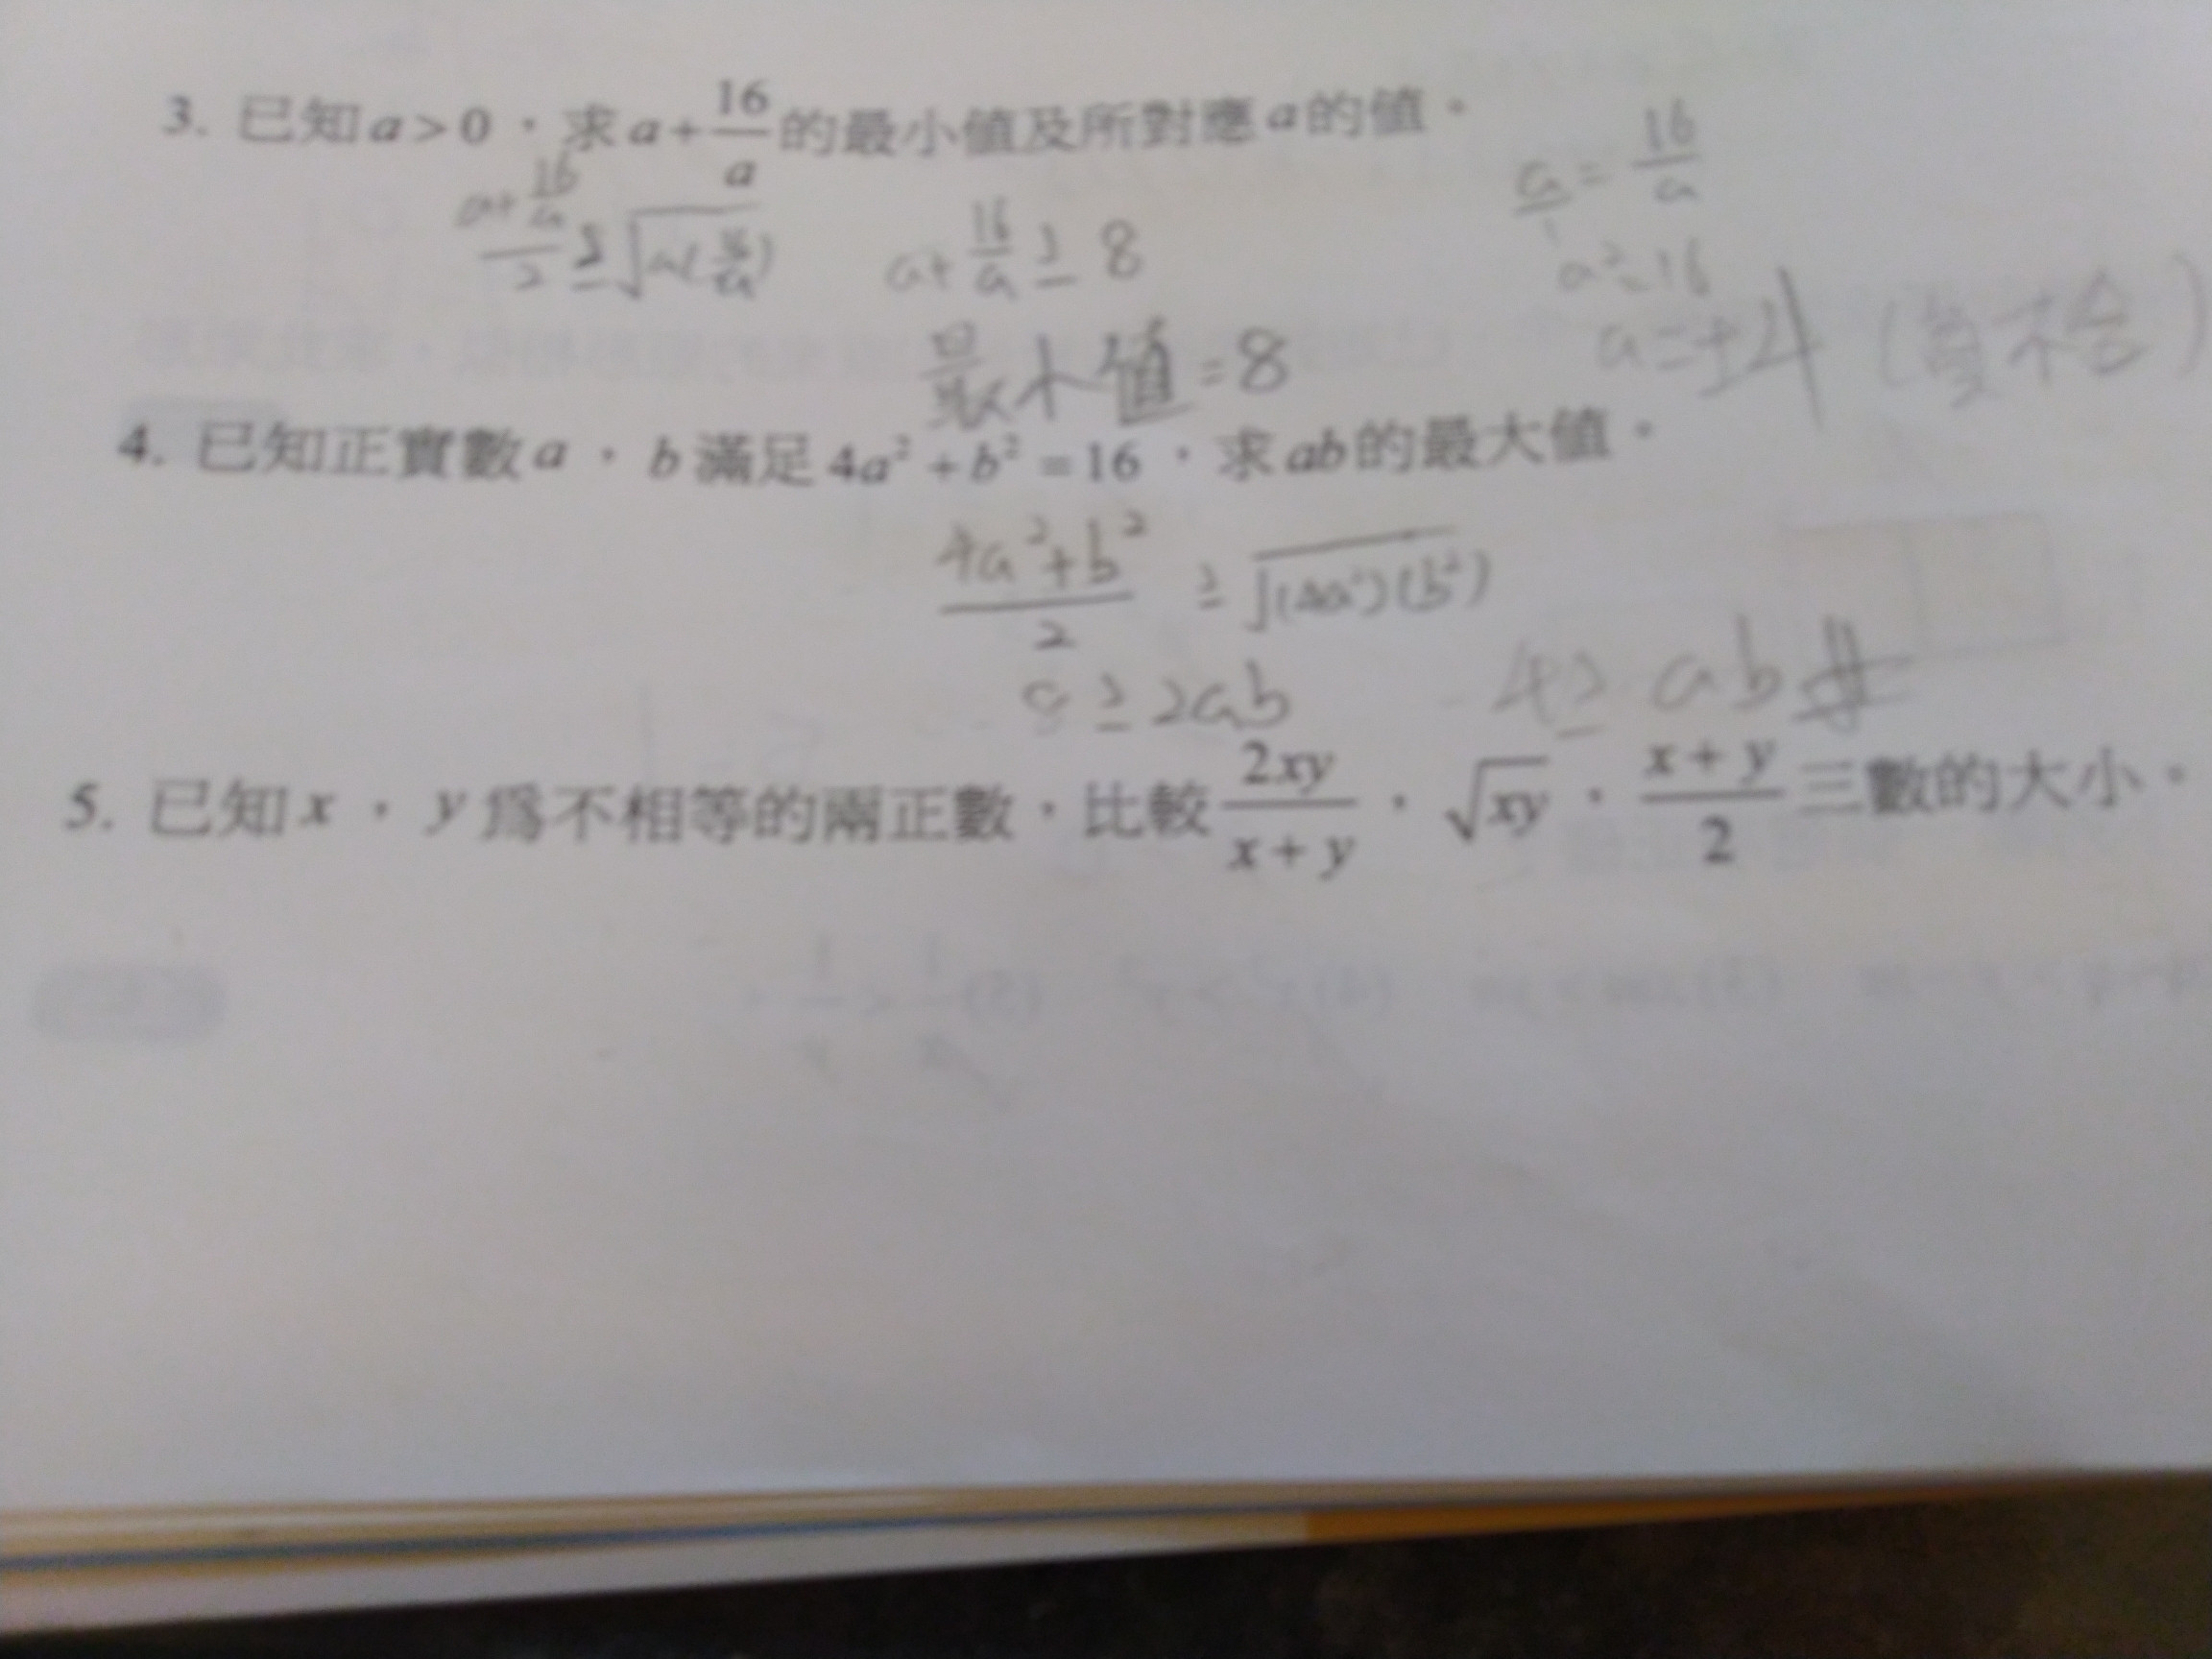 3. 已知a>0，求a+16/a的最小值及所對應a的值。
(a+16/a)/2 ≥ √(a(16/a))
a+16/a ≥ 8
a = 16/a
a²=16
a=±4 (負不合)
最小值=8
4. 已知正實數a，b滿足4a²+b²=16，求ab的最大值。
(4a²+b²)/2 ≥ √((4a²)(b²))
8 ≥ 2ab
4 ≥ ab #
5. 已知x，y為不相等的兩正數，比較2xy/(x+y)，√xy，(x+y)/2三數的大小。